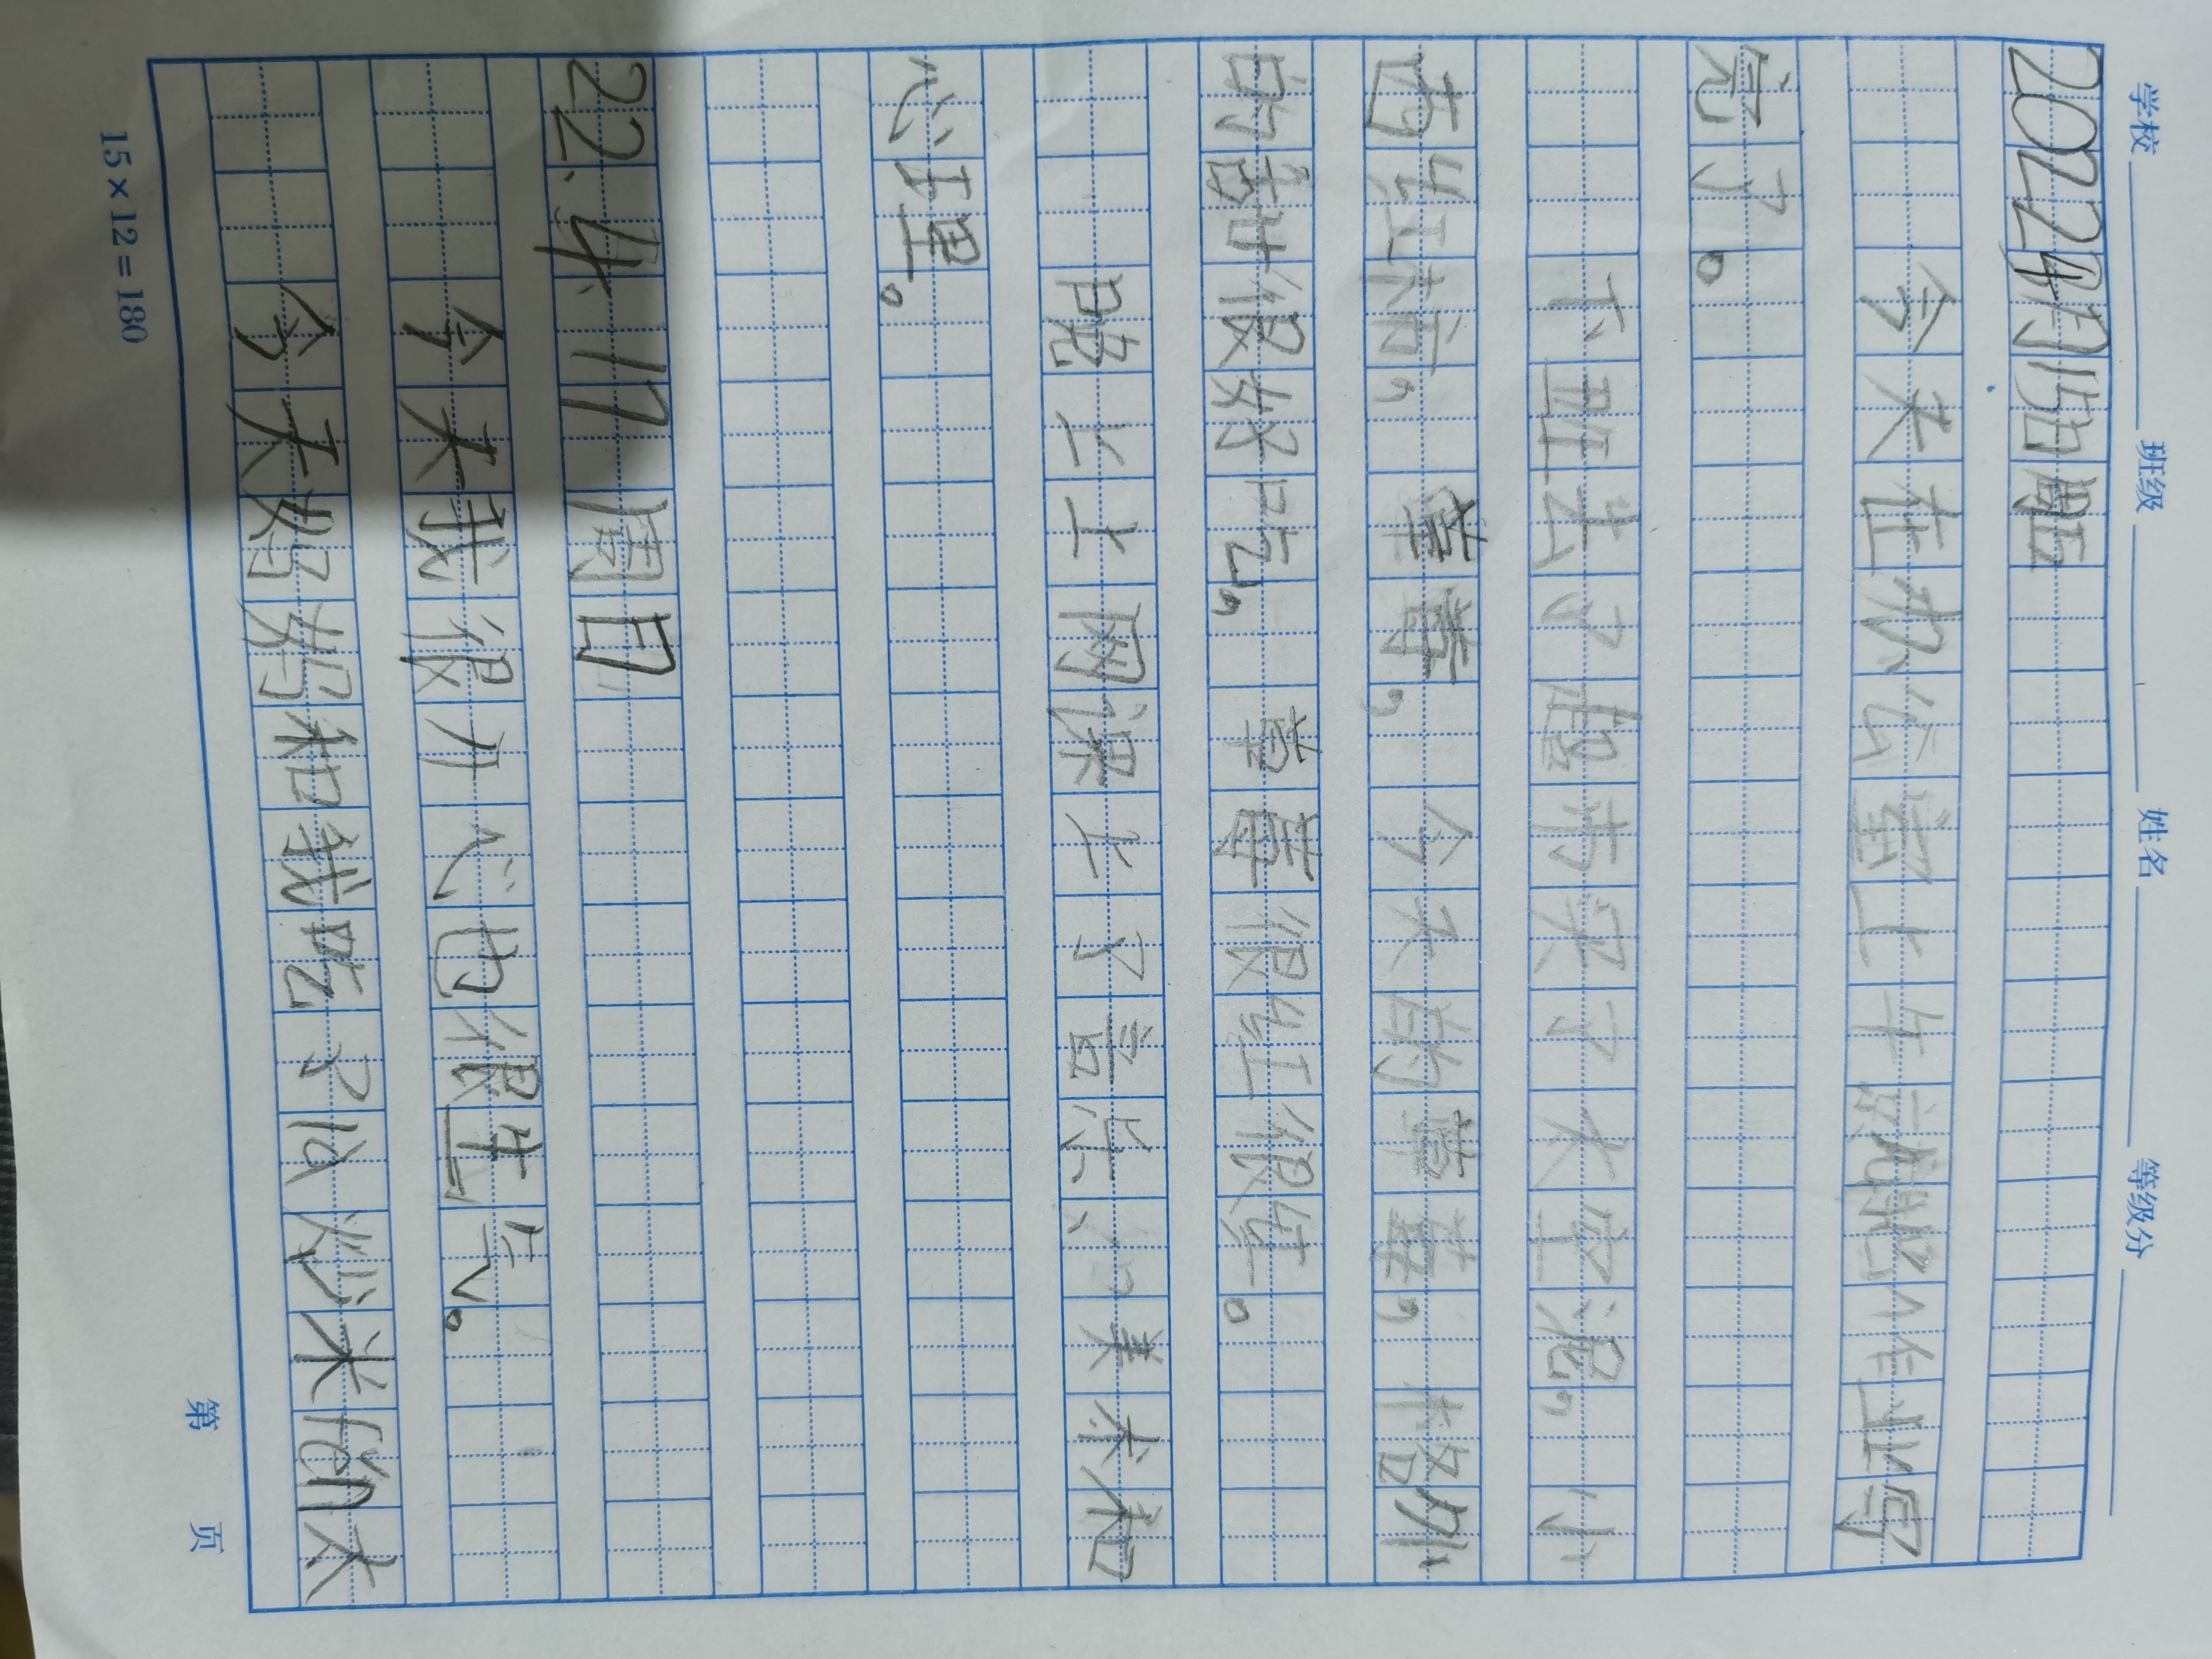 学校 班级 姓名 等级分
2022年4月15日周五
今天在办公室上午就把作业写
完了。
下班去了超市买了大 泥，小
西红柿，草莓，今天的草莓，
的 很好吃，草莓很红很
晚上上网课上了音乐、美术和
心理。
22.4.17周日
今天我很开心也很生气。
今天妈妈和我吃了 炒米 太
第 页
15×12=180